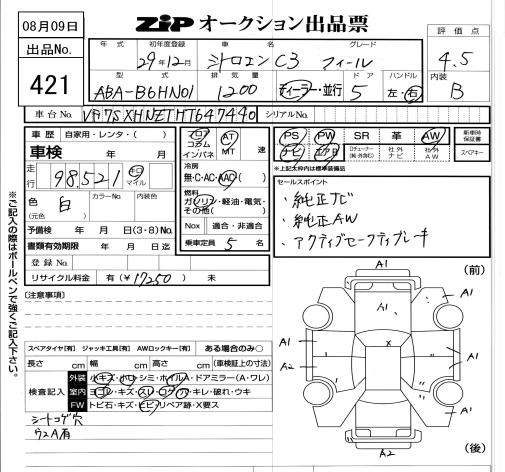 08月09日
ZiP オークション出品票
出品No.
421
年式 初年度登録 車名 グレード 評価点
29年12月 シトロエン C3 フィール 4.5
型式 排気量 ドア ハンドル 内装
ABA-B6HN01 1200 ディーラー・並行 5 左・右 B
車台No. VF7SXHNZTHT647440 シリアルNo.
車歴 自家用・レンタ・( )
車検 年 月
走行 98,521 キロ マイル
色 白 (元色) カラーNo. 内装色
予備検 年 月 日(3・8)No.
書類有効期限 年 月 日迄
登録No.
リサイクル料金 有(¥17250) 未
フロア コラム インパネ AT MT 速
冷房
無・C・AC・AAC
燃料
ガソリン・軽油・電気・その他( )
Nox 適合・非適合
乗車定員 5 名
PS PW SR 革 AW 新車時保証書
ナビ エアB 社外ナビ 社外AW スペアキー
*上記太枠内は標準装備品
セールスポイント
・純正ナビ
・純正AW
・アクティブセーフティブレーキ
[注意事項]
スペアタイヤ[有] ジャッキ工具[有] AWロックキー[有] ある場合のみ○
長さ cm 幅 cm 高さ cm (車検証上の寸法)
検査記入
外装 小キズ・小凹・シミ・ホイルA・ドアミラー(A・ワレ)
室内 ヨゴレ・キズ・スレ・コゲ・穴・キレ・破れ・ウキ
FW トビ石・キズ・ヒビ・リペア跡・X要ス
シートコゲ穴
ウスA有
※ご記入の際はボールペンで強くご記入下さい。
(前)
A1
A1
A1
A1 X A1
A2 A1
A1
A2
(後)